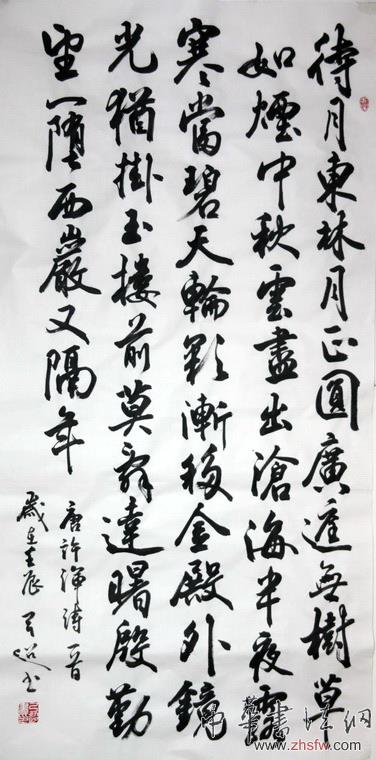 待月東林月正圓廣庭無樹草
如煙中秋雲盡出滄海半夜露
寒當碧天輪彩漸移金殿外鏡
光猶掛玉樓前莫辞達曙殷勤
望一墮西巖又隔年
唐許渾詩一首
歲在壬辰 书
www.zhsfw.com